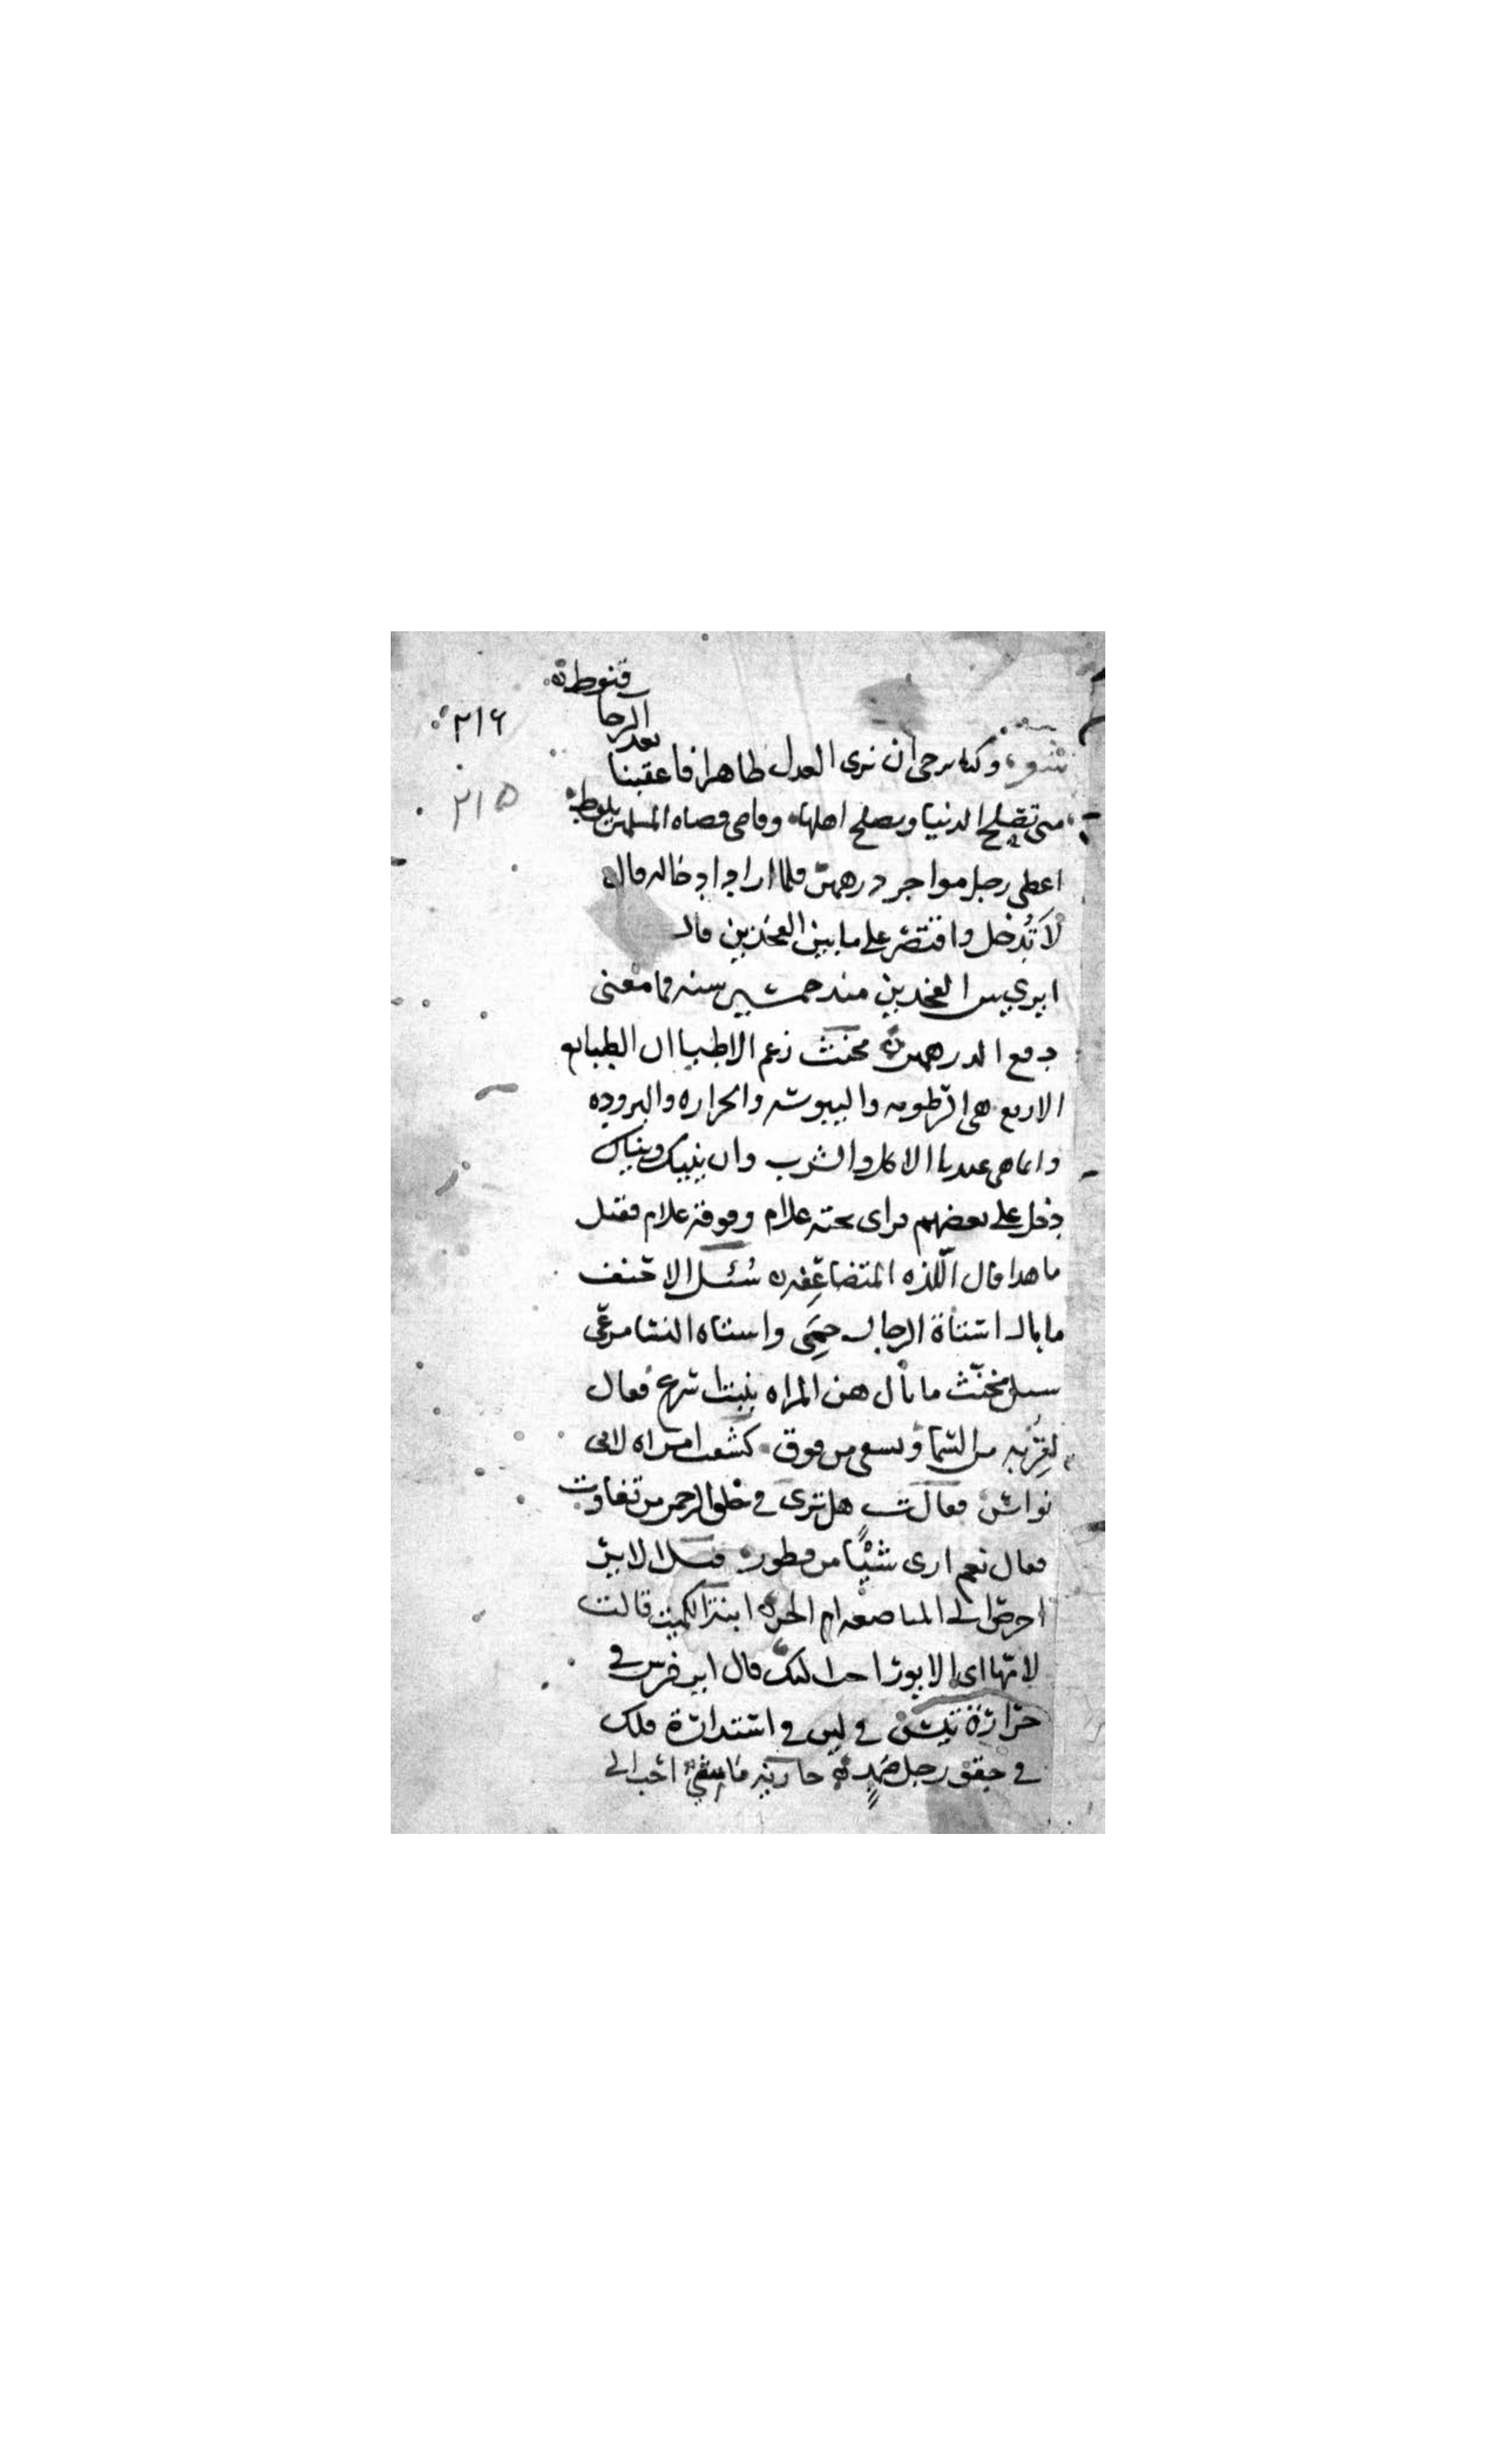 قنوط
٢١٦
الرجا
بعد
شعر وكنا نرجى ان نرى العدل ظاهرا فاعقبنا
٢١٥
متى تصلح الدنيا ويصلح اهلها وقاضى قضاه المسلمين يلوط
اعطى رجل مواجر درهمين فلما اراد ادخاله قال
لا تُدخل واقتصر على ما بين الفخذين قال
ايري بين الفخذين منذ خمسين سنه فما معنى
دفع الدرهمين مخنث زعم الاطبا ان الطبايع
الاربع هى الرطوبه واليبوسه والحراره والبروده
وانما هى عندنا الاكل والشرب وان ينيك ويناك
دخل على بعضهم فراى تحته غلام وفوقه غلام فقيل
ما هذا قال اللّذه المتضاعِفه سُئل الاحنف
ما بال استاة الرجال حِمَى واستاه النسا مرعّى
سيل مخنّث ما بال هن المراه ينبت اسرع فقال
لقُربه من السما ويسقى من فوق كشفت امراه لابى
نواس فقالت هل ترى في خلق الرحمن من تفاوت
فقال نعم ارى شيًّا من فطور قيل لا
ام الحره ابنة قالت
لانّها اى الايور احب اليك قال اير فرس في
حرارة في لين في استدارة ملك
في رجل احب الى